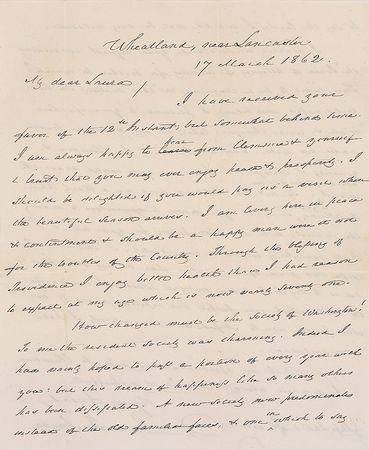 Wheatland, near Lancaster
17 March 1862.
My dear Laura /
I have received your
favor of the 12th Instant; but somewhat behind time.
I am always happy to hear from Clemmie & yourself
& trust that you may ever enjoy peace & prosperity. I
should be delighted if you would pay us a visit when
the beautiful season arrives. I am living here in peace
& contentment & should be a happy man were it not
for the troubles of the Country. Through the blessing of
Providence I enjoy better health than I had reason
to expect at my age which is now nearly seventy one.
How changed must be the Society of Washington!
To me the resident Society was charming. Indeed I
had vainly hoped to pass a portion of every year with
you: but this dream of happiness like so many others
has been dissipated. A new society now predominates
instead of the old familiar faces, & one in which to say